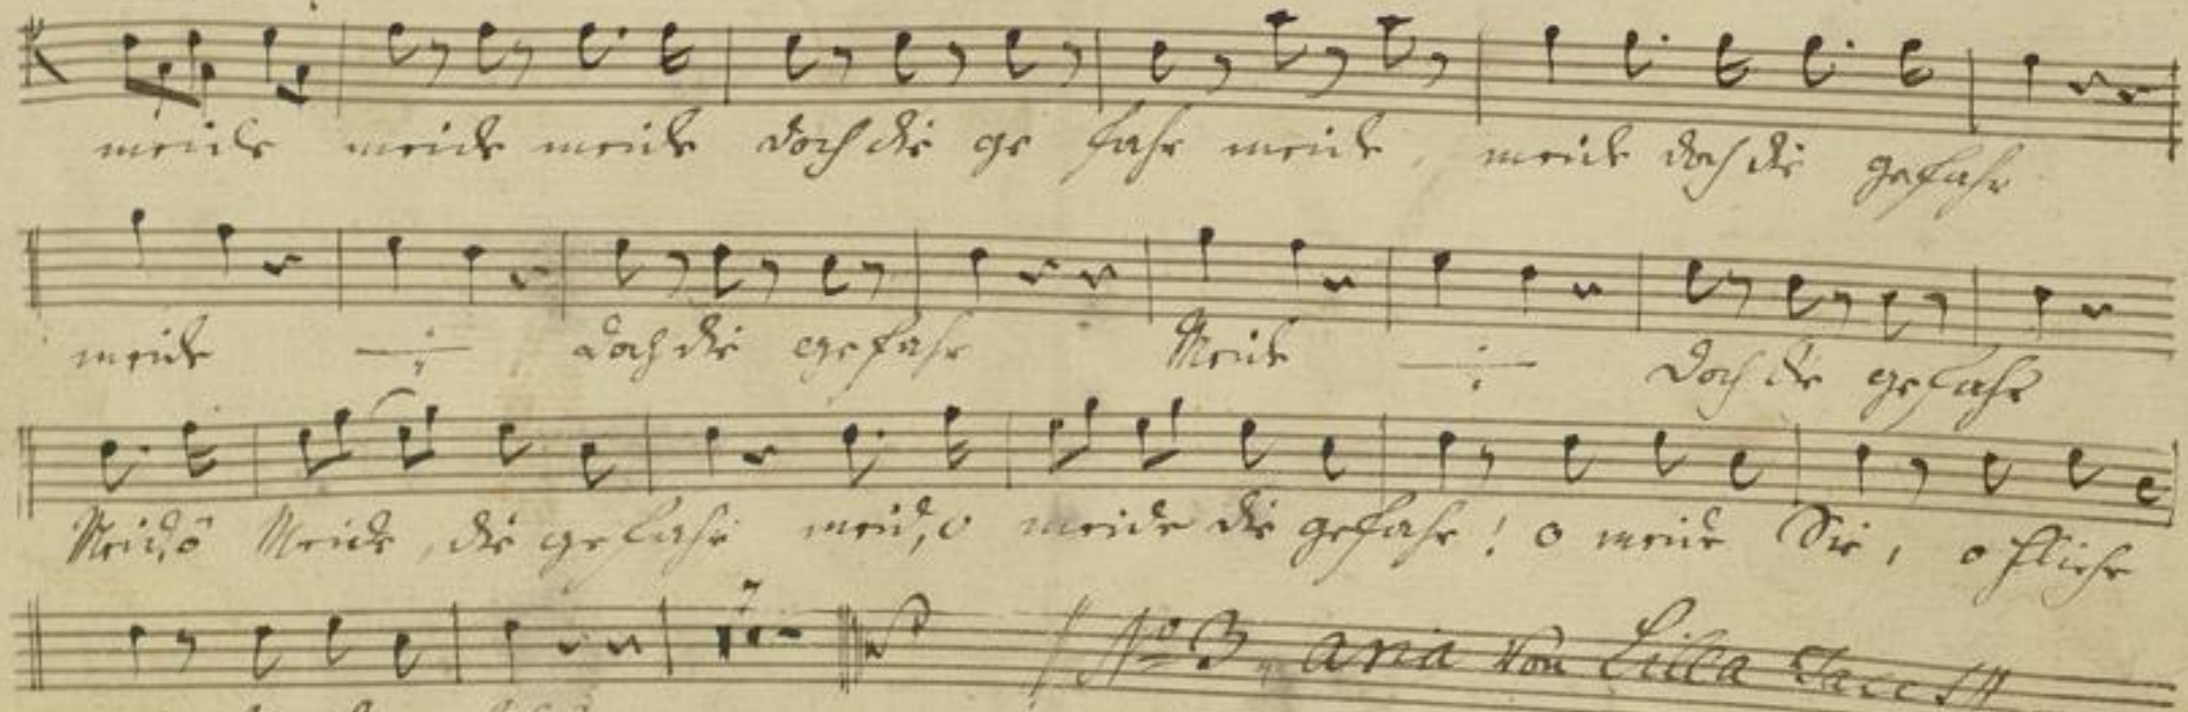 meide meide meide doch die ge fahr meide, meide doch die gefahr
meide doch die gefahr Meide doch die gefahr
Meid, ô Meide, die gefahr meid, o meide die gefahr! o meide Sie, o fliehe
7 No 3 aria von Lilla tacet